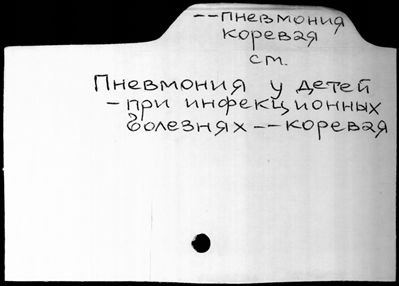 --пневмония
коревая
см.
Пневмония у детей
-при инфекционных
болезнях--коревая